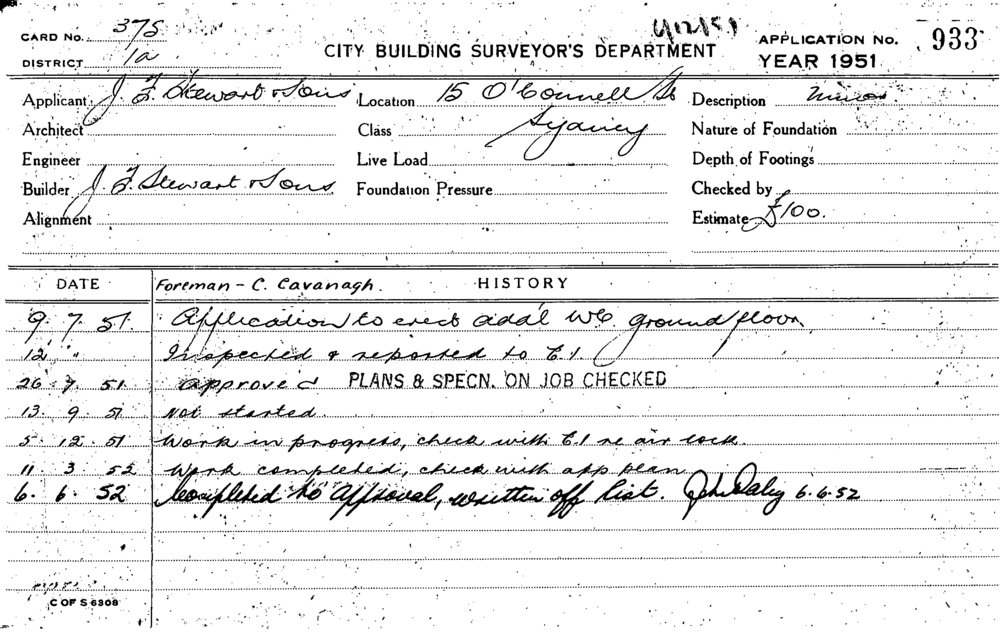 CARD No. 375
DISTRICT 1a
CITY BUILDING SURVEYOR'S DEPARTMENT
4/12/51
APPLICATION No. 933
YEAR 1951
Applicant J. F. Stewart & Sons Location 15 O'Connell St Description Minor
Architect Class Sydney Nature of Foundation
Engineer Live Load Depth of Footings
Builder J. F. Stewart & Sons Foundation Pressure Checked by
Alignment Estimate £100.
DATE Foreman - C. Cavanagh. HISTORY
9. 7. 51. Application to erect addl W.C. ground floor.
12 " Inspected & reported to E.I.
26 7. 51. Approved PLANS & SPECN. ON JOB CHECKED
13. 9. 51 Not started.
5. 12. 51 Work in progress, check with E.I re air lock.
11 3 52 Work completed, check with app plan
6. 6. 52 Completed to Approval, written off list. John Daley 6.6.52
C OF S 6308